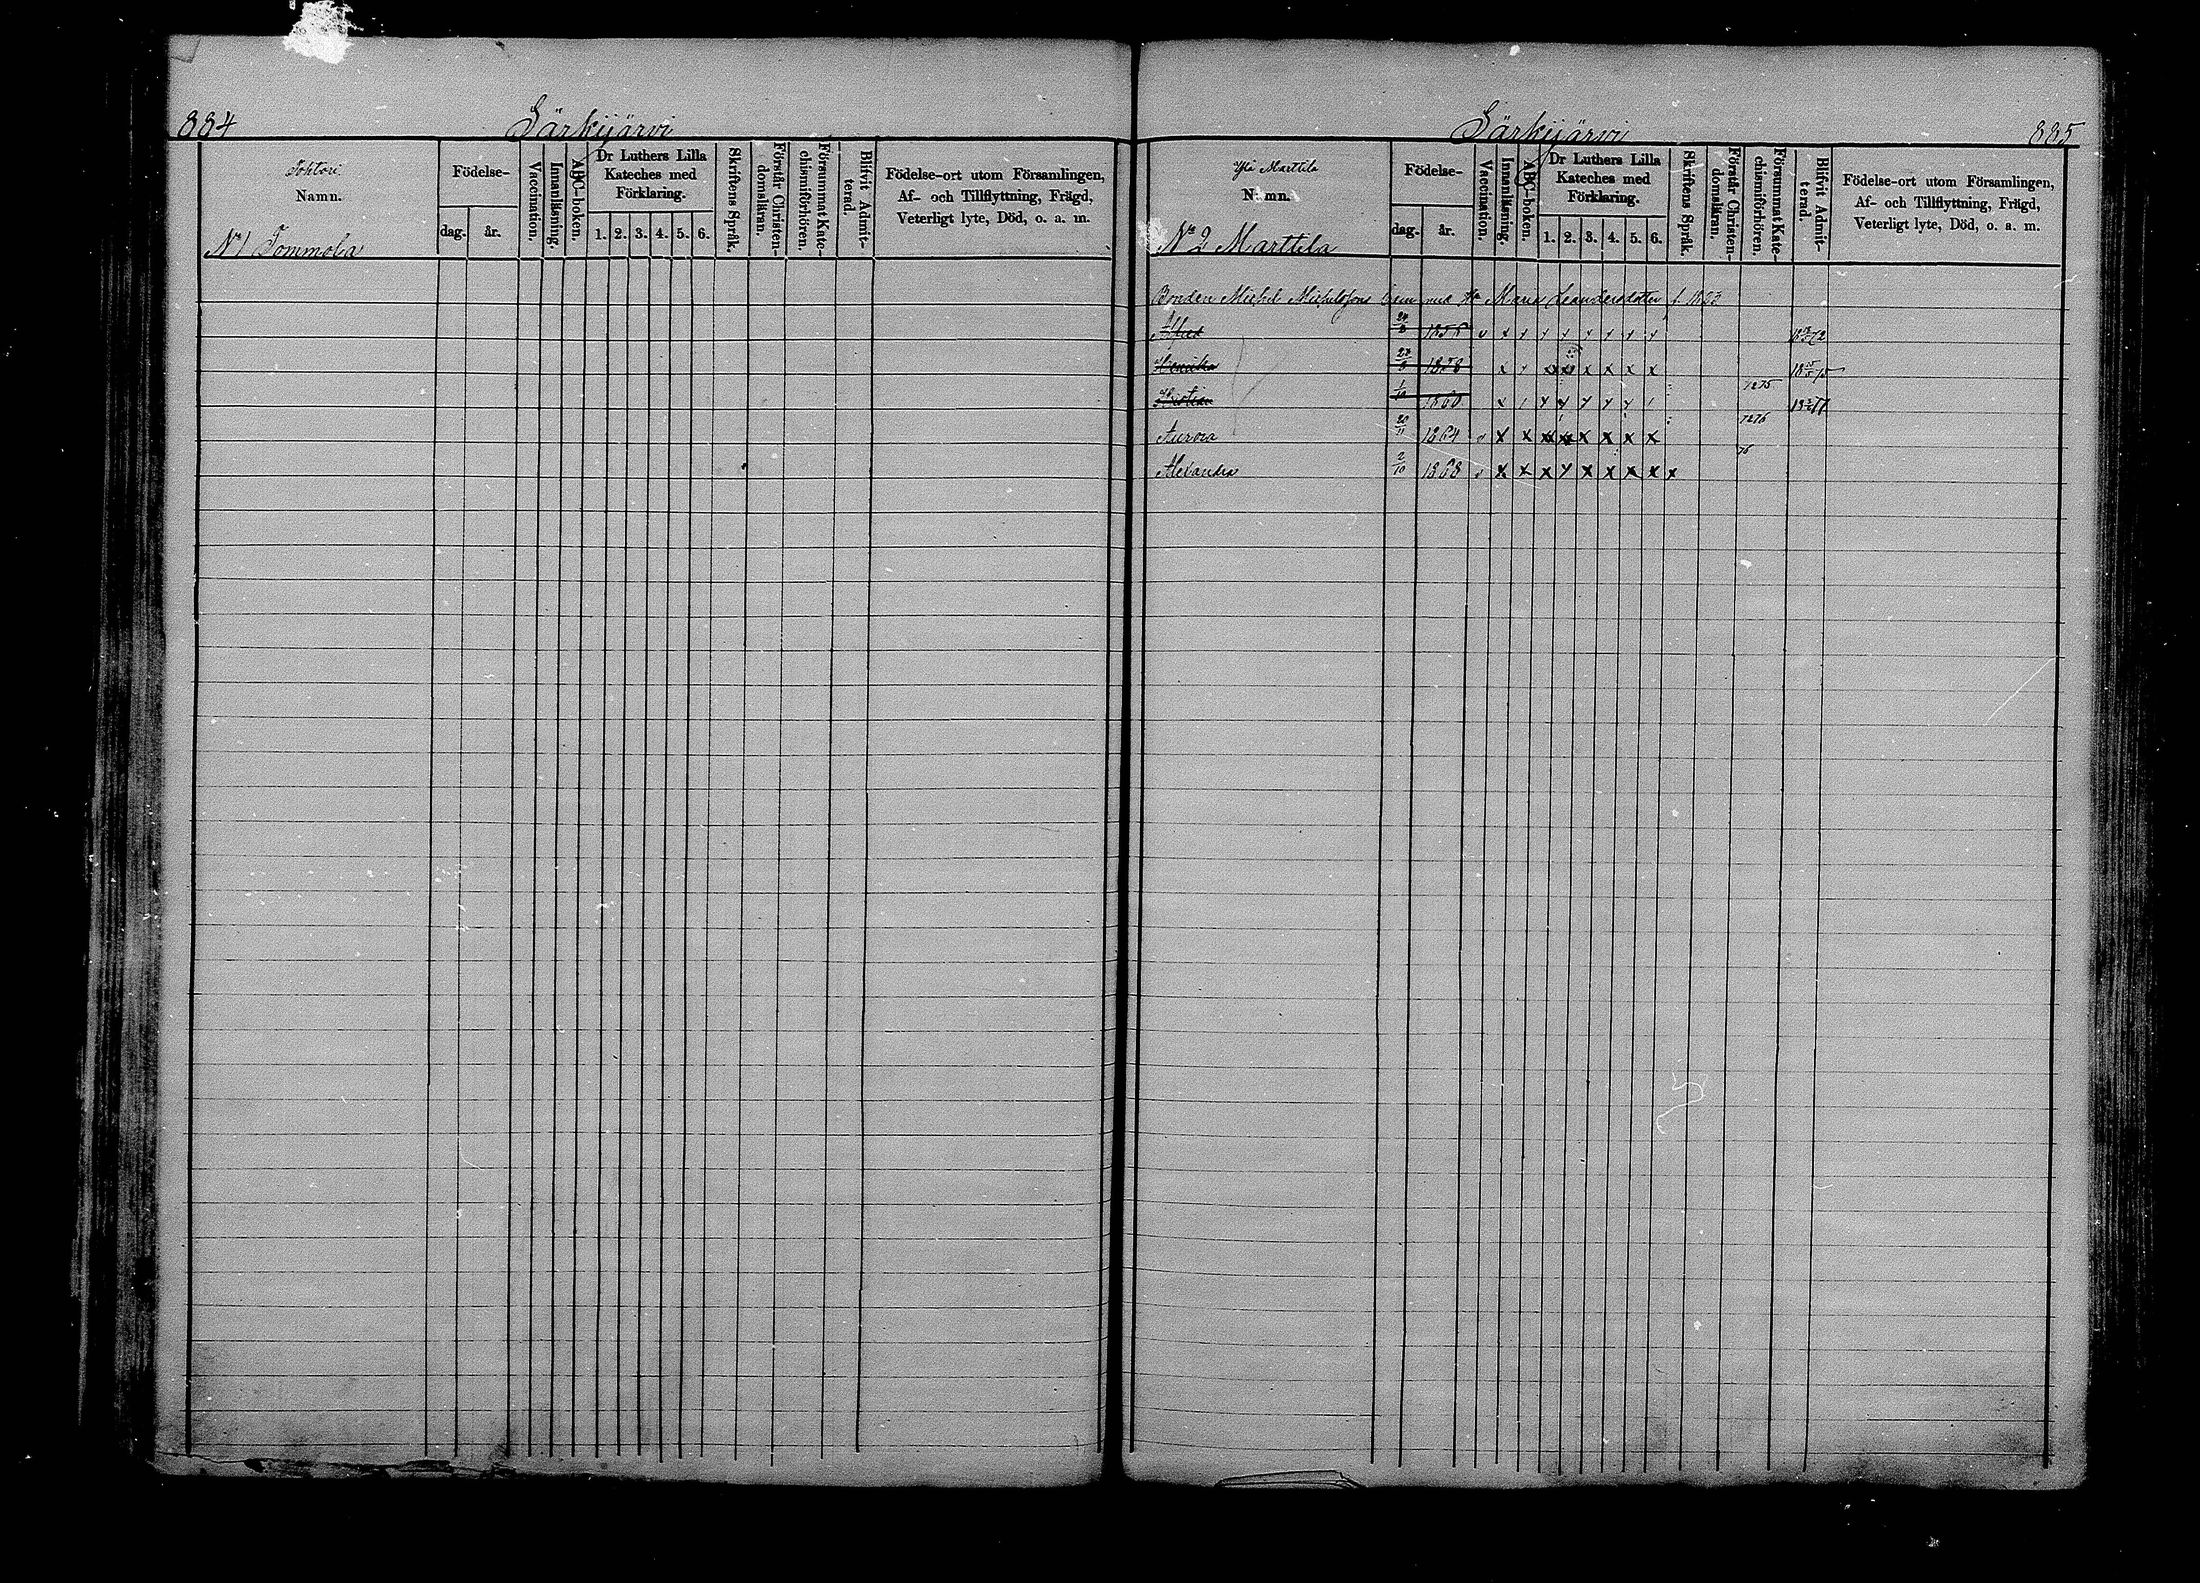 884
Särkijärvi
Tohtori
Namn.
Födelse-
dag. år.
Vaccination.
Innanläsning.
ABC-boken.
Dr Luthers Lilla
Kateches med
Förklaring.
1. 2. 3. 4. 5. 6.
Skriftens Språk.
Förstår Christen-
domsläran.
Försummat Kate-
chismiförhören.
Blifvit Admit-
terad.
Födelse-ort utom Församlingen,
Af- och Tillflyttning, Frägd,
Veterligt lyte, Död, o. a. m.
No 1 Tommola
Särkijärvi
885
Yli Marttila
Namn.
Födelse-
dag. år.
Vaccination.
Innanläsning.
ABC-boken.
Dr Luthers Lilla
Kateches med
Förklaring.
1. 2. 3. 4. 5. 6.
Skriftens Språk.
Förstår Christen-
domsläran.
Försummat Kate-
chismiförhören.
Blifvit Admit-
terad.
Födelse-ort utom Församlingen,
Af- och Tillflyttning, Frägd,
Veterligt lyte, Död, o. a. m.
No 2 Marttila
Bonden Michel Michelssons barn med Maria Leandersdotter f. 1823
Alfred 1855 v x x x x x x x x
Henrika 1858 x x x x x x x x
Kristian 1/10 1860 x x x x x x x x 7275
Aurora 20/11 1864 v x x x x x x x x 7276
Alexandra 2/10 1868 v x x x x x x x x x 76